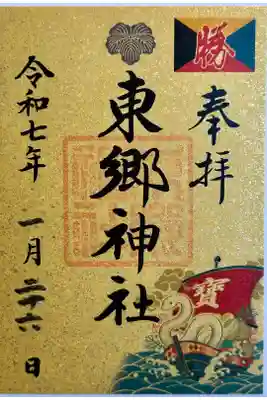 勝
奉拝
東郷神社
令和七年 一月二十六日
寳